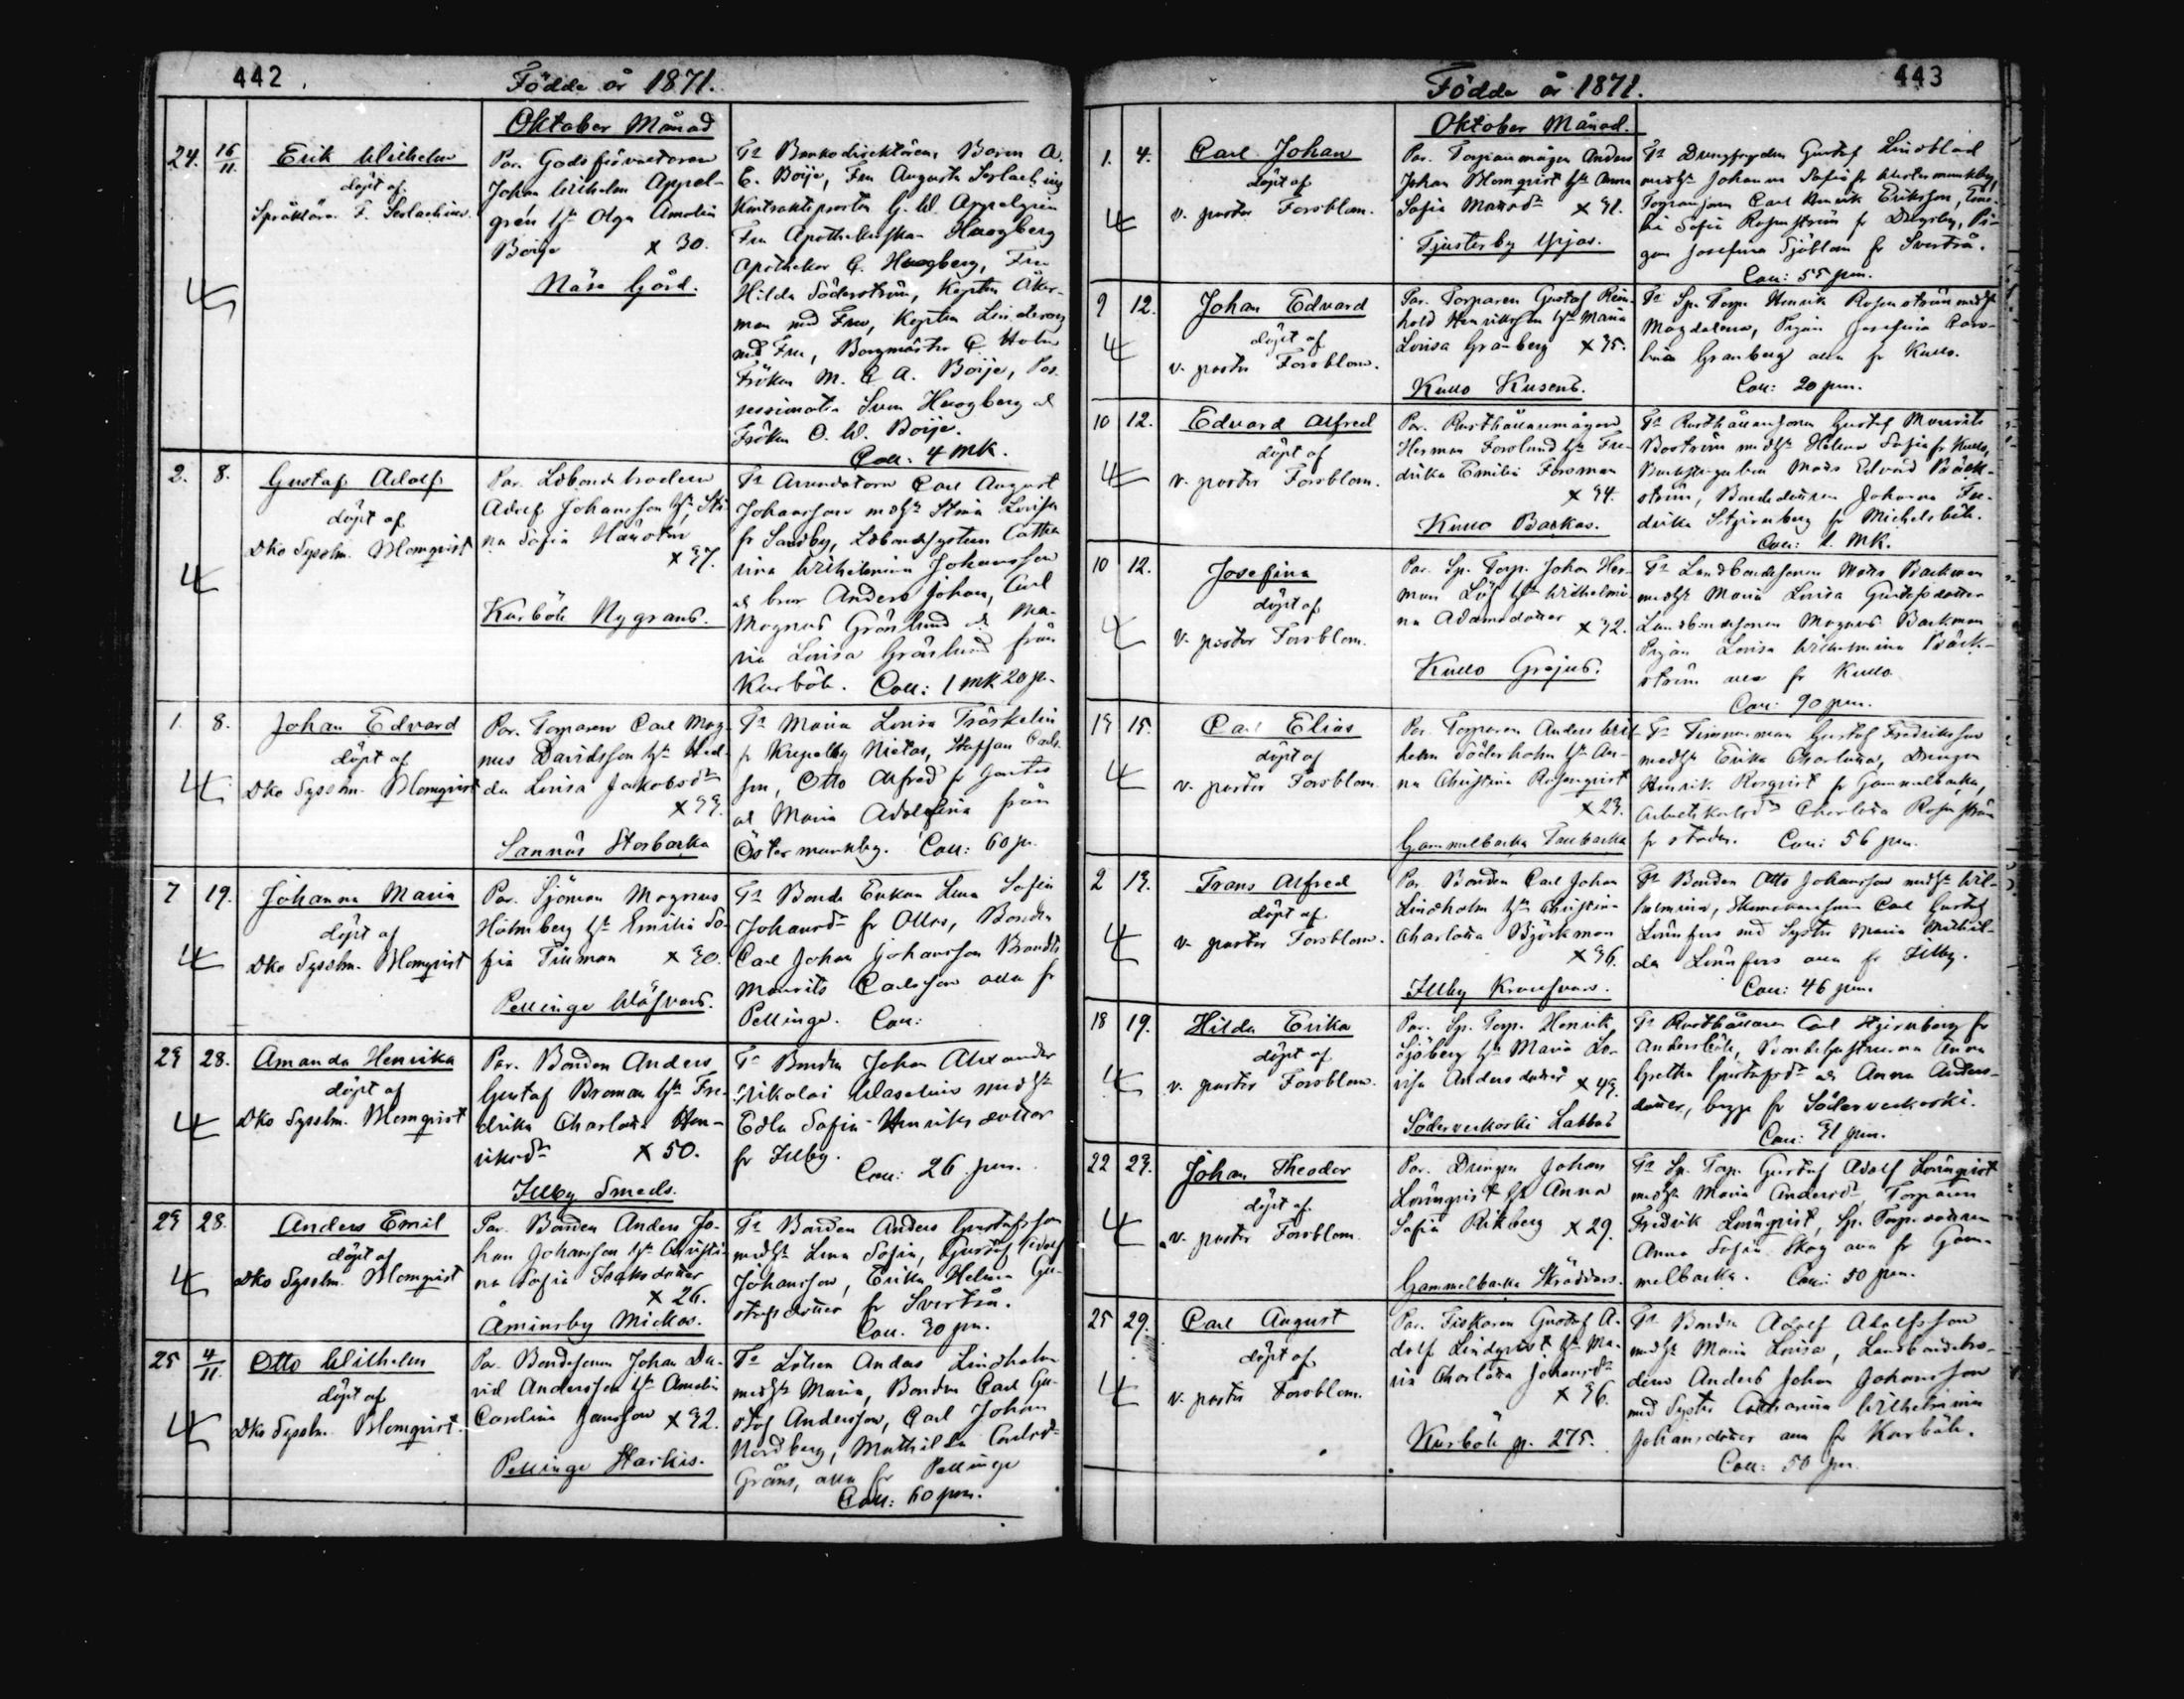 442
Födde år 1871.
Oktober Månad
24. 16/11 Erik Wilhelm
döpt af
Språklär. F. Serlachius.
Par. Godsförvaltaren
Johan Wilhelm Appel-
gren h. Olga Amalia
Boije × 30.
Näse Gård.
Ts Bankodirektören, Baron A.
E. Boije, Fru Augusta Serlachius
Kontraktsprosten G. W. Appelgren
Fru Apothekerskan Haagberg
Apothekar G. Haagberg, Fru
Hilda Söderström, Kapten Åker-
man med Fru, Kapten
med Fru, Borgmäster C. Holm
Fröken M. & A. Boije, Pos-
sessionaten Sven Haagberg o
Fröken O. W. Boije.
Coll: 4 mk.
2. 8. Gustaf Adolf
döpt af
Dko Sysslm. Blomqvist
Par. Lbondebrodern
Adolf Johansson h. Sti-
na Sofia
× 37.
Karböle Nygrans.
Ts Arrendatorn Carl August
Johansson med h. Stina Lovisa
fr Sandby, Lbondesystern Catha
rina Wilhelmina Johansson
o bror Anders Johan, Carl
Magnus Grönlund o Ma-
ria Lovisa Grönlund från
Karböle. Coll: 1 mk 20 p.
1. 8. Johan Edvard
döpt af
Dko Sysslm. Blomqvist
Par. Torparen Carl Mag-
nus Davidsson h. Hed-
da Lovisa Jakobsdr
× 33.
Sannäs Storbacka
Ts Maria Lovisa Träskelin
fr Krepelby Nietas, Staffan Carls-
son, Otto Alfred fr
o Maria Adolfina från
Östermunkby. Coll: 60 p.
7 19. Johanna Maria
döpt af
Dko Sysslm. Blomqvist
Par. Sjöman Magnus
Holmberg h. Emilia So-
fia Tillman × 30.
Pellinge Wäfvars.
Ts Bonde Enkan Lena Sofia
Johansdr fr Ollas, Bonden
Carl Johan Johansson
Maurits Carlsson alla fr
Pellinge. Coll:
23 28. Amanda Henrika
döpt af
Dko Sysslm. Blomqvist
Par. Bonden Anders
Gustaf Broman h. Fre-
drika Charlotta Hen-
riksdr × 50.
Illby Smeds.
Ts Bonden Johan Alexander
Nikolai Waselius med h.
Edla Sofia Henriksdotter
fr Illby.
Coll: 26 pen.
23 28. Anders Emil
döpt af
Dko Sysslm. Blomqvist
Par. Bonden Anders Jo-
han Johansson h. Christi-
na Sofia Isaksdotter
× 26.
Åminsby Mickas.
Ts Bonden Anders Gustafsson
med h. Lena Sofia, Gustaf Adolf
Johansson, Erika Helena Gu-
stafsdotter fr Svartså.
Coll. 30 pn.
25 4/11 Otto Wilhelm
döpt af
Dko Sysslm. Blomqvist.
Par. Bondesonen Johan Da-
vid Andersson h. Amalia
Carolina Jansson × 32.
Pellinge Markis.
Ts Lotsen Anders Lindholm
med h. Maria, Bonden Carl Gu-
staf Andersson, Carl Johan
Nordberg, Mathilda Carlsdr
Gräns, alla fr Pellinge
Coll: 60 pen.
443
Födde år 1871.
Oktober Månad.
1. 4. Carl Johan
döpt af
v. pastor Forsblom.
Par. Torparemågen Anders
Johan Blomqvist h. Anna
Sofia Mattsdr × 31.
Tjusterby Ypjas.
Ts Drengfogden Gustaf Lindblad
med h. Johanna Sofia fr Westermunkby,
Torparesonen Carl Henrik Eriksson, Emi-
lia Sofia Rosenström fr Drägsby, Pi-
gan Josefina Sjöblom fr Svartså.
Coll: 55 pen.
9 12. Johan Edvard
döpt af
v. pastor Forsblom.
Par. Torparen Gustaf Rein-
hold Henriksson h. Maria
Lovisa Granberg × 35.
Kullo Kusens.
Ts Sp. Torp. Henrik Rosenström med h
Magdalena, Pigan Josefina Caro-
lina Granberg alla fr Kullo.
Coll: 20 pen.
10 12. Edvard Alfred
döpt af
v. pastor Forsblom.
Par. Rusthållaremågen
Herman Forslund h. Fre-
drika Emilia Forsman
× 34.
Kullo Backas.
Ts Rusthållaresonen Gustaf Maurits
Boström med h. Helena Sofia fr Kullo,
Mats Edvard Bäck-
ström, Bondedottren Johanna Fre-
drika Stjernberg fr Mickelsböle.
Coll: 1. mk.
10 12. Josefina
döpt af
v. pastor Forsblom.
Par. Sp. Torp. Johan Her-
man Löf h. Wilhelmi-
na Adamsdotter × 32.
Kullo Grejus.
Ts Landbondesonen Mats Backman
med h. Maria Lovisa Gustafsdotter
Landbondesonen Magnus Backman
Pigan Lovisa Wilhelmina Bäck-
ström alla fr Kullo
Coll: 90 pen.
13 15. Carl Elias
döpt af
v. pastor Forsblom.
Par. Torparen Anders Wil-
helm Söderholm h. An-
na Christina Rosenqvist
× 23.
Gammelbacka Tallbacka
Ts Timmerman Gustaf Fredriksson
med h. Erika Charlotta, Drengen
Henrik Rosqvist fr Gammelbacka,
Arbetskarlsdr Charlotta Rosenström
fr staden. Coll: 56 pen.
2 13. Frans Alfred
döpt af
v. pastor Forsblom.
Par. Bonden Carl Johan
Lindholm h. Christina
Charlotta Björkman
× 36.
Illby
Ts Bonden Otto Johansson med h. Wil-
helmina, Carl Gustaf
Lönnfors med Syster Maria Mathil-
da Lönnfors alla fr Illby.
Coll: 46 pen.
18 19. Hilda Erika
döpt af
v. pastor Forsblom.
Par. Sp. Torp. Henrik
Sjöberg h. Maria Lo-
visa Andersdotter × 43.
Söderveckoski Labbas
Ts Rusthållaren Carl Stjernberg fr
Andersböle, Bondehustrurna Anna
Gretha Gustafsdr o Anna Anders-
dotter, begge fr Söderveckoski.
Coll: 31 pen.
22 23. Johan Theodor
döpt af
v. pastor Forsblom.
Par. Drengen Johan
Lönnqvist h. Anna
Sofia Rikberg × 29.
Gammelbacka Skräddars.
Ts Sp. Torp. Gustaf Adolf Lönnqvist
med h. Maria Andersdr, Torparen
Fredrik Lönnqvist, Sp. Torp. dottren
Anna Sofia Skog alla fr Gam-
melbacka. Coll: 50 pen.
25 29. Carl August
döpt af
v. pastor Forsblom.
Par. Fiskaren Gustaf A-
dolf Lindqvist h. Ma-
ria Charlotta Johansdr
× 36.
Karböle p. 275.
Ts Bonden Adolf Adolfsson
med h. Maria Lovisa, Landbondebro-
dern Anders Johan Johansson
med Syster Catharina Wilhelmina
Johansdotter alla fr Karböle.
Coll: 50 pen.